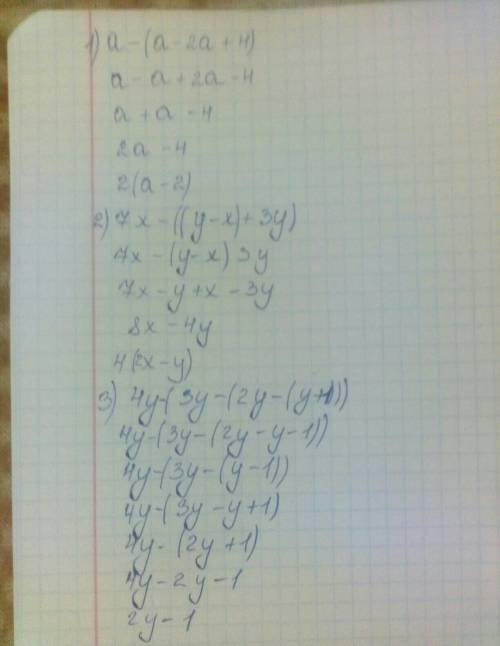 1) a - (a - 2a + 4)
a - a + 2a - 4
a + a - 4
2a - 4
2(a - 2)
2) 7x - ((y - x) + 3y)
7x - (y - x) 3y
7x - y + x - 3y
8x - 4y
4(2x - y)
3) 4y - (3y - (2y - (y + 1)))
4y - (3y - (2y - y - 1))
4y - (3y - (y - 1))
4y - (3y - y + 1)
4y - (2y + 1)
4y - 2y - 1
2y - 1